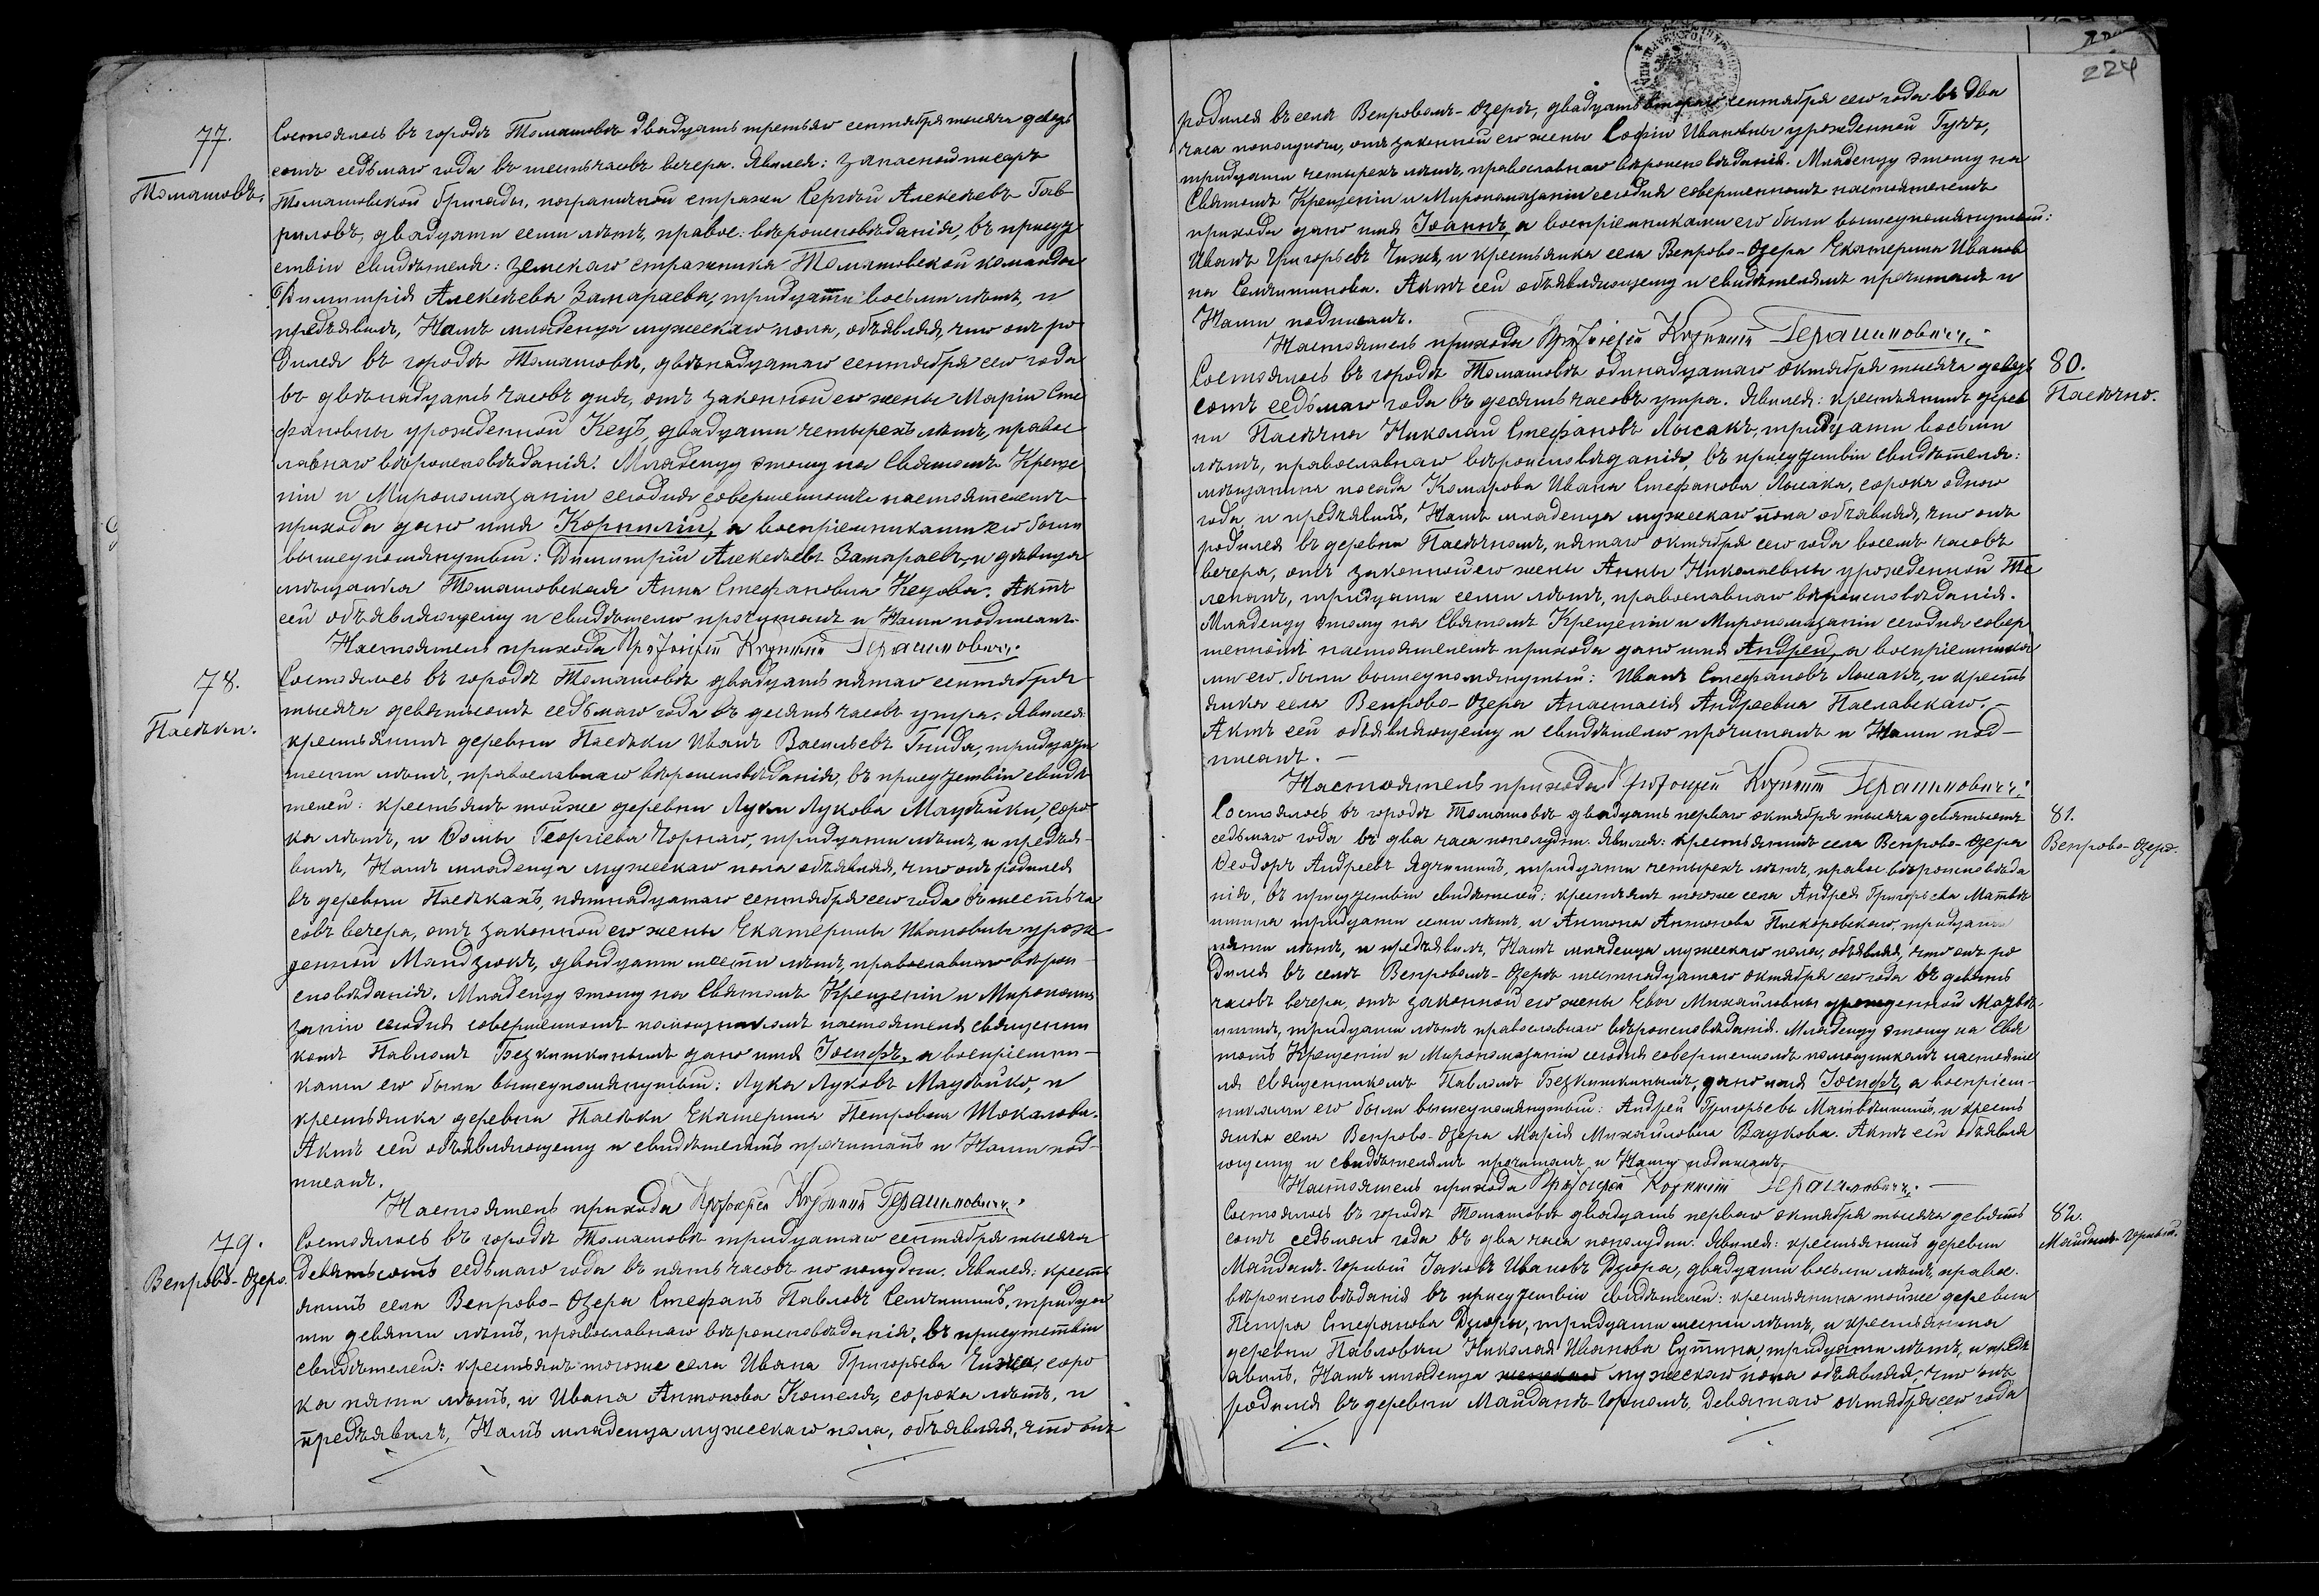 77.
Томашовъ.
Состоялось въ городѣ Томашовѣ двадцать третьяго сентября тысяча девять
сотъ седьмаго года въ шесть часовъ вечера. Явился: запасной писарь
Томашовской бригады, пограничной стражи Сергѣй Алексѣевъ Гав-
риловъ, двадцати семи лѣтъ, правос: вѣроисповѣданія, въ присут
ствіи свидѣтеля: земскаго стражника Томашовской команды
Димитрія Алексѣева Замараева, тридцати восьми лѣтъ, и
предъявилъ, Намъ младенца мужескаго пола, объявляя, что онъ ро
дился въ городѣ Томашовѣ, двѣнадцатаго сентября сего года
въ двѣнадцать часовъ дня, отъ законной его жены Маріи Сте
фановны урожденной Кецъ, двадцати четырехъ лѣтъ, правос
лавнаго вѣроисповѣданія. Младенцу этому на Святомъ Креще
ніи и Миропомазаніи сегодня совершенномъ настоятелемъ
прихода дано имя Корнилій, а воспріемниками его были
вышеупомянутый: Димитрій Алексѣевъ Замараевъ, и дѣвица
мѣщанка Томашовская Анна Стефановна Кецова. Актъ
сей объявляющему и свидѣтелю прочитанъ и Нами подписанъ.
Настоятель прихода Протоіерей Корнилій Герашиновичъ.
78.
Пасѣки.
Состоялось въ городѣ Томашовѣ двадцать пятаго сентября
тысяча девятьсотъ седьмаго года въ десять часовъ утра. Явился:
крестьянинъ деревни Пасѣки Иванъ Васильевъ Гнида, тридцати
шести лѣтъ, православнаго вѣроисповѣданія, въ присутствіи свидѣ
телей: крестьянъ тойже деревни Луки Лукова Мацѣйки, соро
ка лѣтъ, и Ѳомы Георгіева Чорнаго, тридцати лѣтъ, и предъя-
вилъ, Намъ младенца мужескаго пола объявляя, что онъ родился
въ деревни Пасѣкахъ, пятнадцатаго сентября сего года въ шесть ча
совъ вечера, отъ законной его жены Екатерины Ивановны урож
денной Мандзюкъ, двадцати шести лѣтъ, православнаго вѣрои-
сповѣданія. Младенцу этому на Святомъ Крещеніи и Миропома
заніи сегодня совершенномъ помощникомъ настоятеля священни
комъ Павломъ Безкишкинымъ дано имя Іосифъ, а воспріемни-
ками его были вышеупомянутый: Лука Луковъ Мацѣйко, и
крестьянка деревни Пасѣки Екатерина Петровна Токалова.
Актъ сей объявляющему и свидѣтелямъ прочитанъ и Нами под-
писанъ.
Настоятель прихода Протоіерей Корнилій Герашиновичъ.
79.
Венрово-Озеро.
Состоялось въ городѣ Томашовѣ тридцатаго сентября тысяча
девятьсотъ седьмаго года въ пять часовъ по полудни. Явился: кресть
янинъ села Венрово-Озера Стефанъ Павловъ Семчишинъ, тридца
ти девяти лѣтъ, православнаго вѣроисповѣданія, въ присутствіи
свидѣтелей: крестьянъ тогоже села Ивана Григорьева Чижа, соро
ка пяти лѣтъ, и Ивана Антонова Кошеля, сорока лѣтъ, и
предъявилъ, Намъ младенца мужескаго пола, объявляя, что онъ
224
родился въ селѣ Венровомъ-Озерѣ, двадцать втораго сентября сего года въ два
часа пополуночи, отъ законной его жены Софіи Ивановны урожденной Гучъ,
тридцати четырехъ лѣтъ, православнаго вѣроисповѣданія. Младенцу этому на
Святомъ Крещеніи и Миропомазаніи сегодня совершенномъ настоятелемъ
прихода дано имя Іоаннъ, а воспріемниками его были вышеупомянутый:
Иванъ Григорьевъ Чижъ, и крестьянка села Венрово-Озера Екатерина Иванов
на Семчишинова. Актъ сей объявляющему и свидѣтелямъ прочитанъ и
Нами подписанъ.
Настоятель прихода Протоіерей Корнилій Герашиновичъ.
80.
Пасѣчно.
Состоялось въ городѣ Томашовѣ одинадцатаго октября тысяча девять
сотъ седьмаго года въ десять часовъ утра. Явился: крестьянинъ дерев
ни Пасѣчна Николай Стефановъ Лысакъ, тридцати восьми
лѣтъ, православнаго вѣроисповѣданія, въ присутствіи свидѣтеля:
мѣщанина посада Комарова Ивана Стефанова Лысака, сорока одного
года, и предъявилъ, Намъ младенца мужескаго пола объявляя, что онъ
родился въ деревни Пасѣчномъ, пятаго октября сего года восемь часовъ
вечера, отъ законной его жены Анны Николаевны урожденной Те
лепанъ, тридцати семи лѣтъ, православнаго вѣроисповѣданія.
Младенцу этому на Святомъ Крещеніи и Миропомазаніи сегодня совер
шенномъ настоятелемъ прихода дано имя Андрей, а воспріемника
ми его были вышеупомянутый: Иванъ Стефановъ Лысакъ, и кресть
янка села Венрово-Озера Анастасія Андреевна Паславская.
Актъ сей объявляющему и свидѣтелю прочитанъ и Нами под-
писанъ.
Настоятель прихода Протоіерей Корнилій Герашиновичъ.
81.
Венрово-Озеро.
Состоялось въ городѣ Томашовѣ двадцать перваго октября тысяча девятьсотъ
седьмаго года въ два часа пополудни. Явился: крестьянинъ села Венрово-Озера
Ѳеодоръ Андреевъ Ядчишинъ, тридцати четырехъ лѣтъ, правос вѣроисповѣда
нія, въ присутствіи свидѣтелей: крестьянъ тогоже села Андрея Григорьева Матвѣ
ишина тридцати семи лѣтъ, и Антона Антонова Пискоровскаго, тридцати
пяти лѣтъ, и предъявилъ, Намъ младенца мужескаго пола, объявляя, что онъ ро
дился въ селѣ Венровомъ-Озерѣ шестнадцатаго октября сего года въ девять
часовъ вечера, отъ законной его жены Евы Михайловны урожденной Матвѣ-
ишинъ, тридцати лѣтъ православнаго вѣроисповѣданія. Младенцу этому на Свя
томъ Крещеніи и Миропомазаніи сегодня совершенномъ помощникомъ настояте
ля священникомъ Павломъ Безкишкинымъ, дано имя Іосифъ, а воспріем-
никами его были вышеупомянутый: Андрей Григорьевъ Матвѣишинъ, и кресть
янка села Венрово-Озера Марія Михайловна Ваукова. Актъ сей объявля
ющему и свидѣтелямъ прочитанъ и Нами подписанъ.
Настоятель прихода Протоіерей Корнилій Герашиновичъ.
82.
Майданъ-Горный.
Состоялось въ городѣ Томашовѣ двадцать перваго октября тысяча девять
сотъ седьмаго года въ два часа пополудни. Явился: крестьянинъ деревни
Майданъ-Горный Іаковъ Ивановъ Дзюра, двадцати восьми лѣтъ, правос.
вѣроисповѣданія въ присутствіи свидѣтелей: крестьянина тойже деревни
Петра Стефанова Дзюры, тридцати шести лѣтъ, и крестьянина
деревни Павловки Николая Иванова Супина, тридцати лѣтъ, и предъ
явилъ, Намъ младенца женскаго мужескаго пола объявляя, что онъ
родился въ деревни Майданѣ-Горномъ, девятаго октября сего года